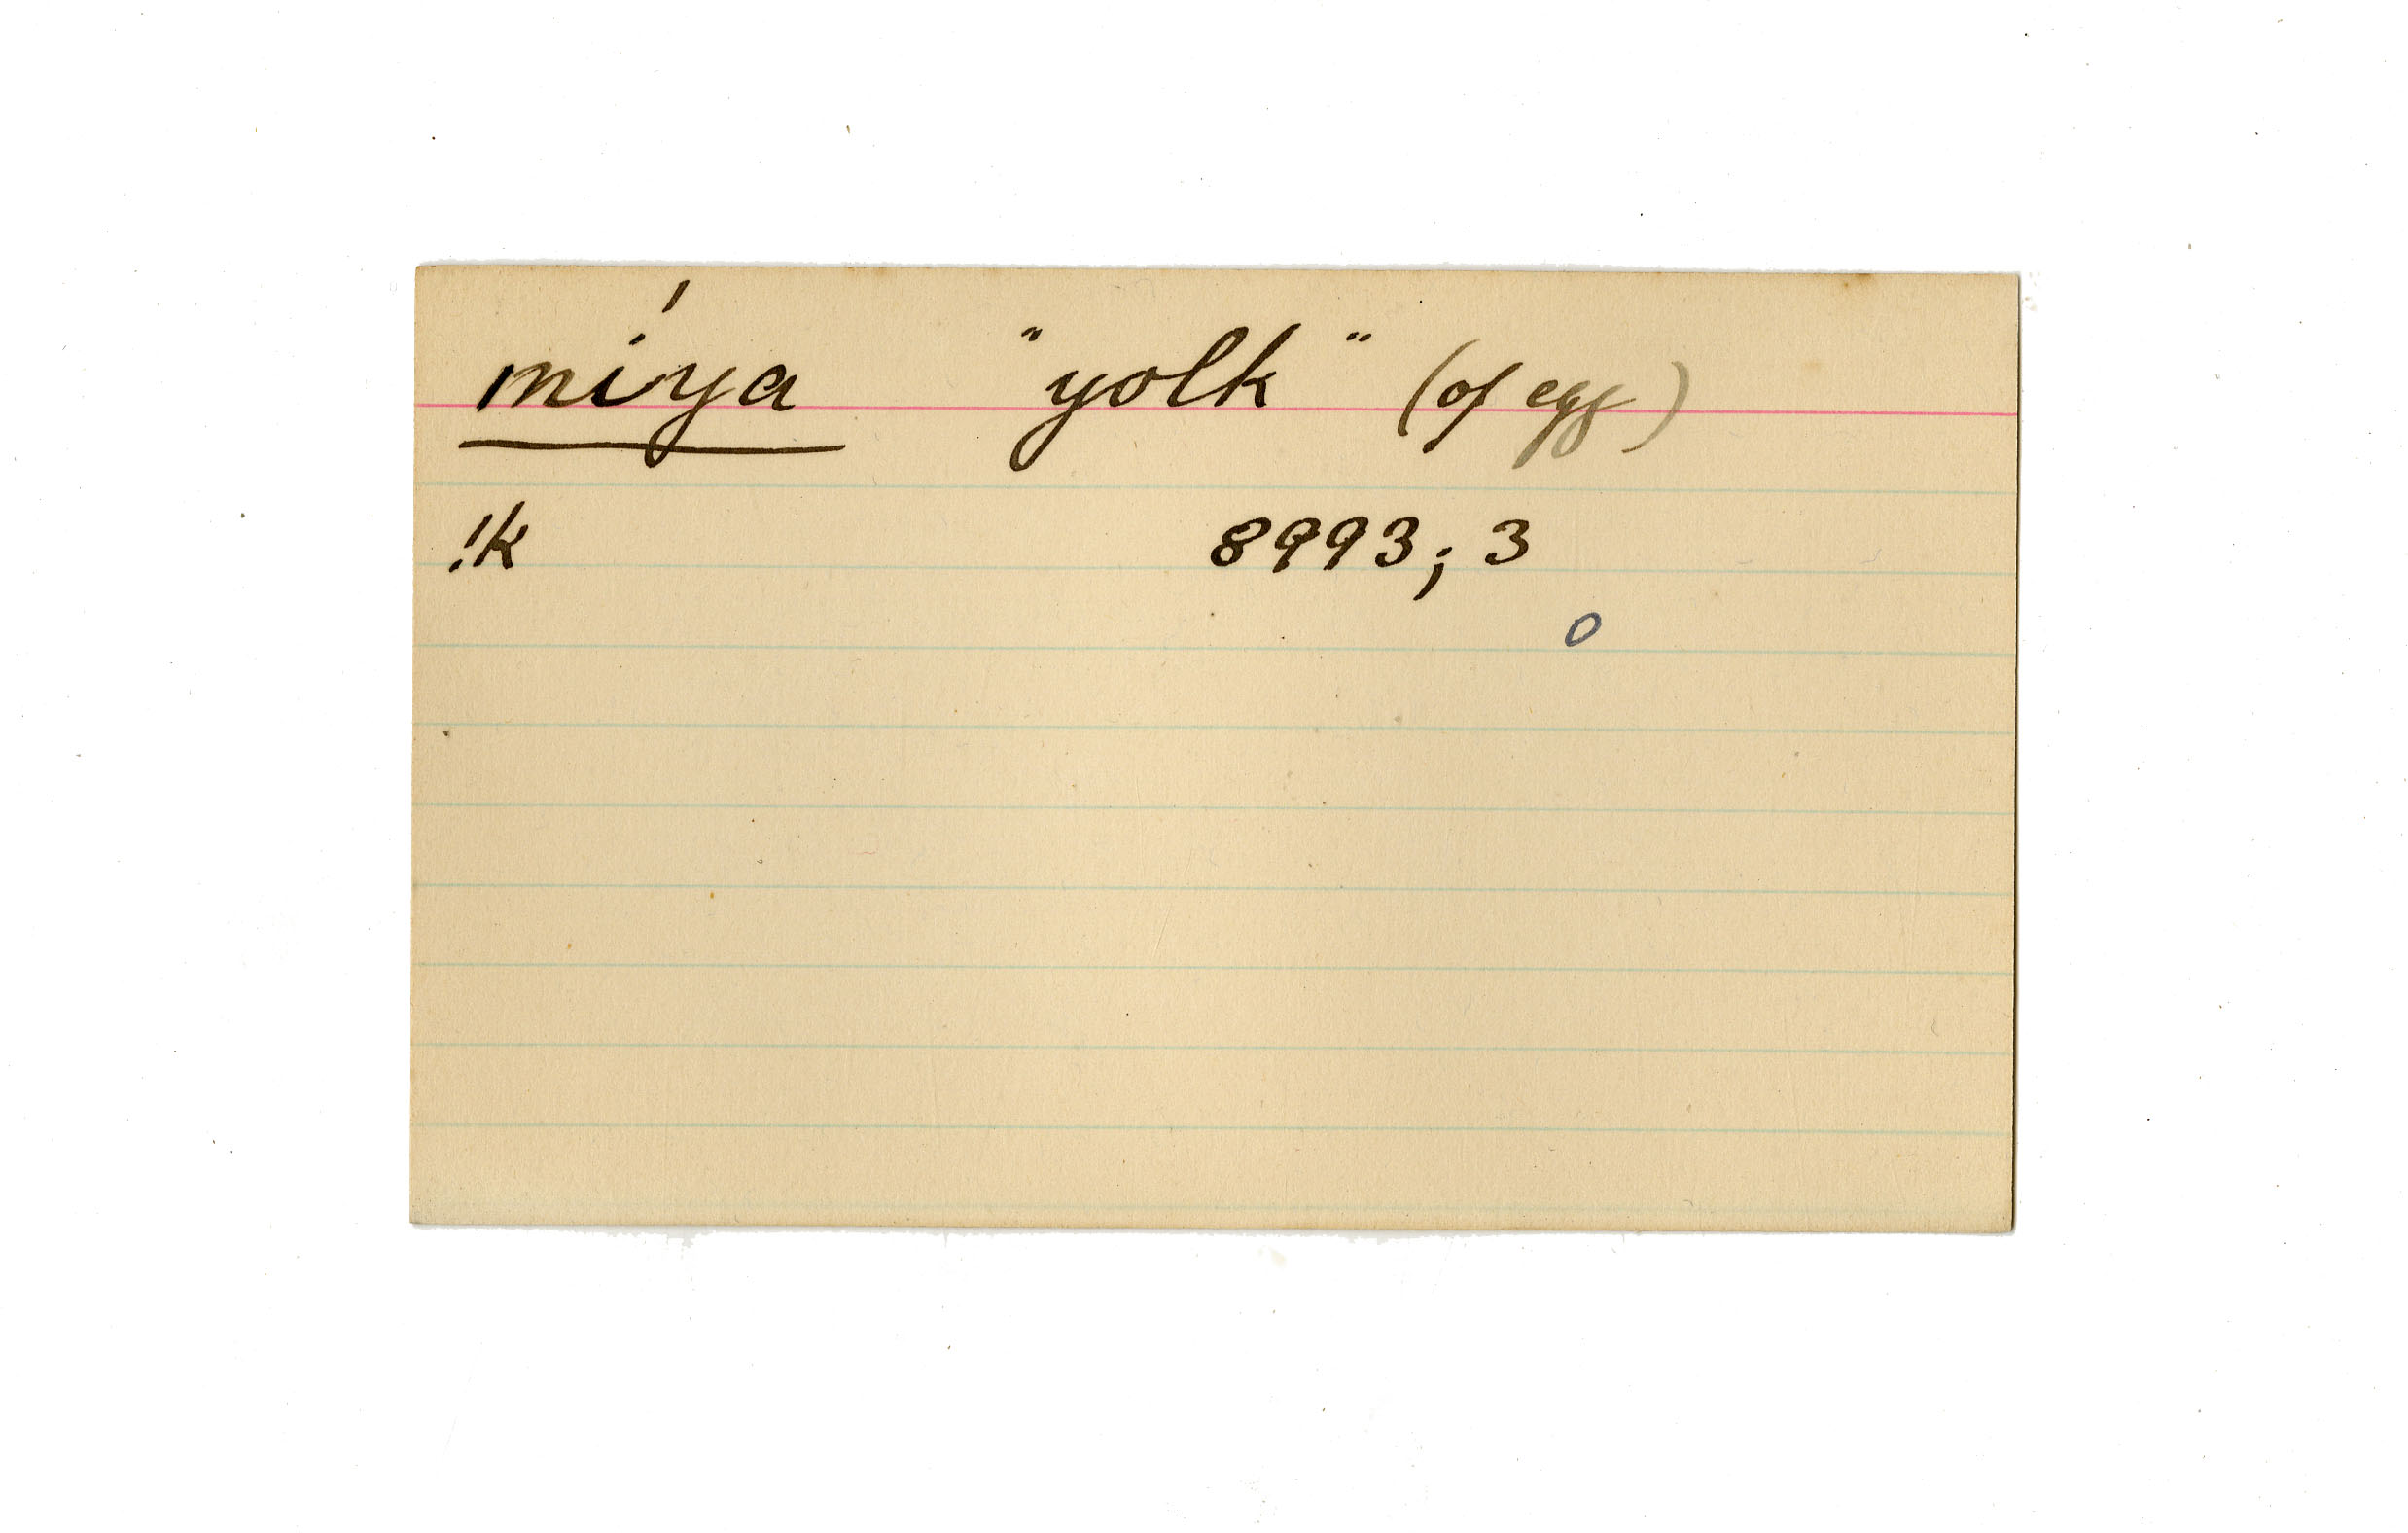 míya "yolk" (of egg)
!k 8993; 3
o